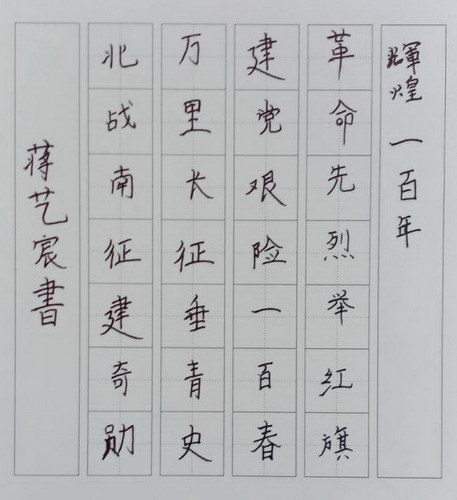 輝煌一百年
革命先烈举红旗
建党艰险一百春
万里长征垂青史
北战南征建奇勋
蒋艺宸書